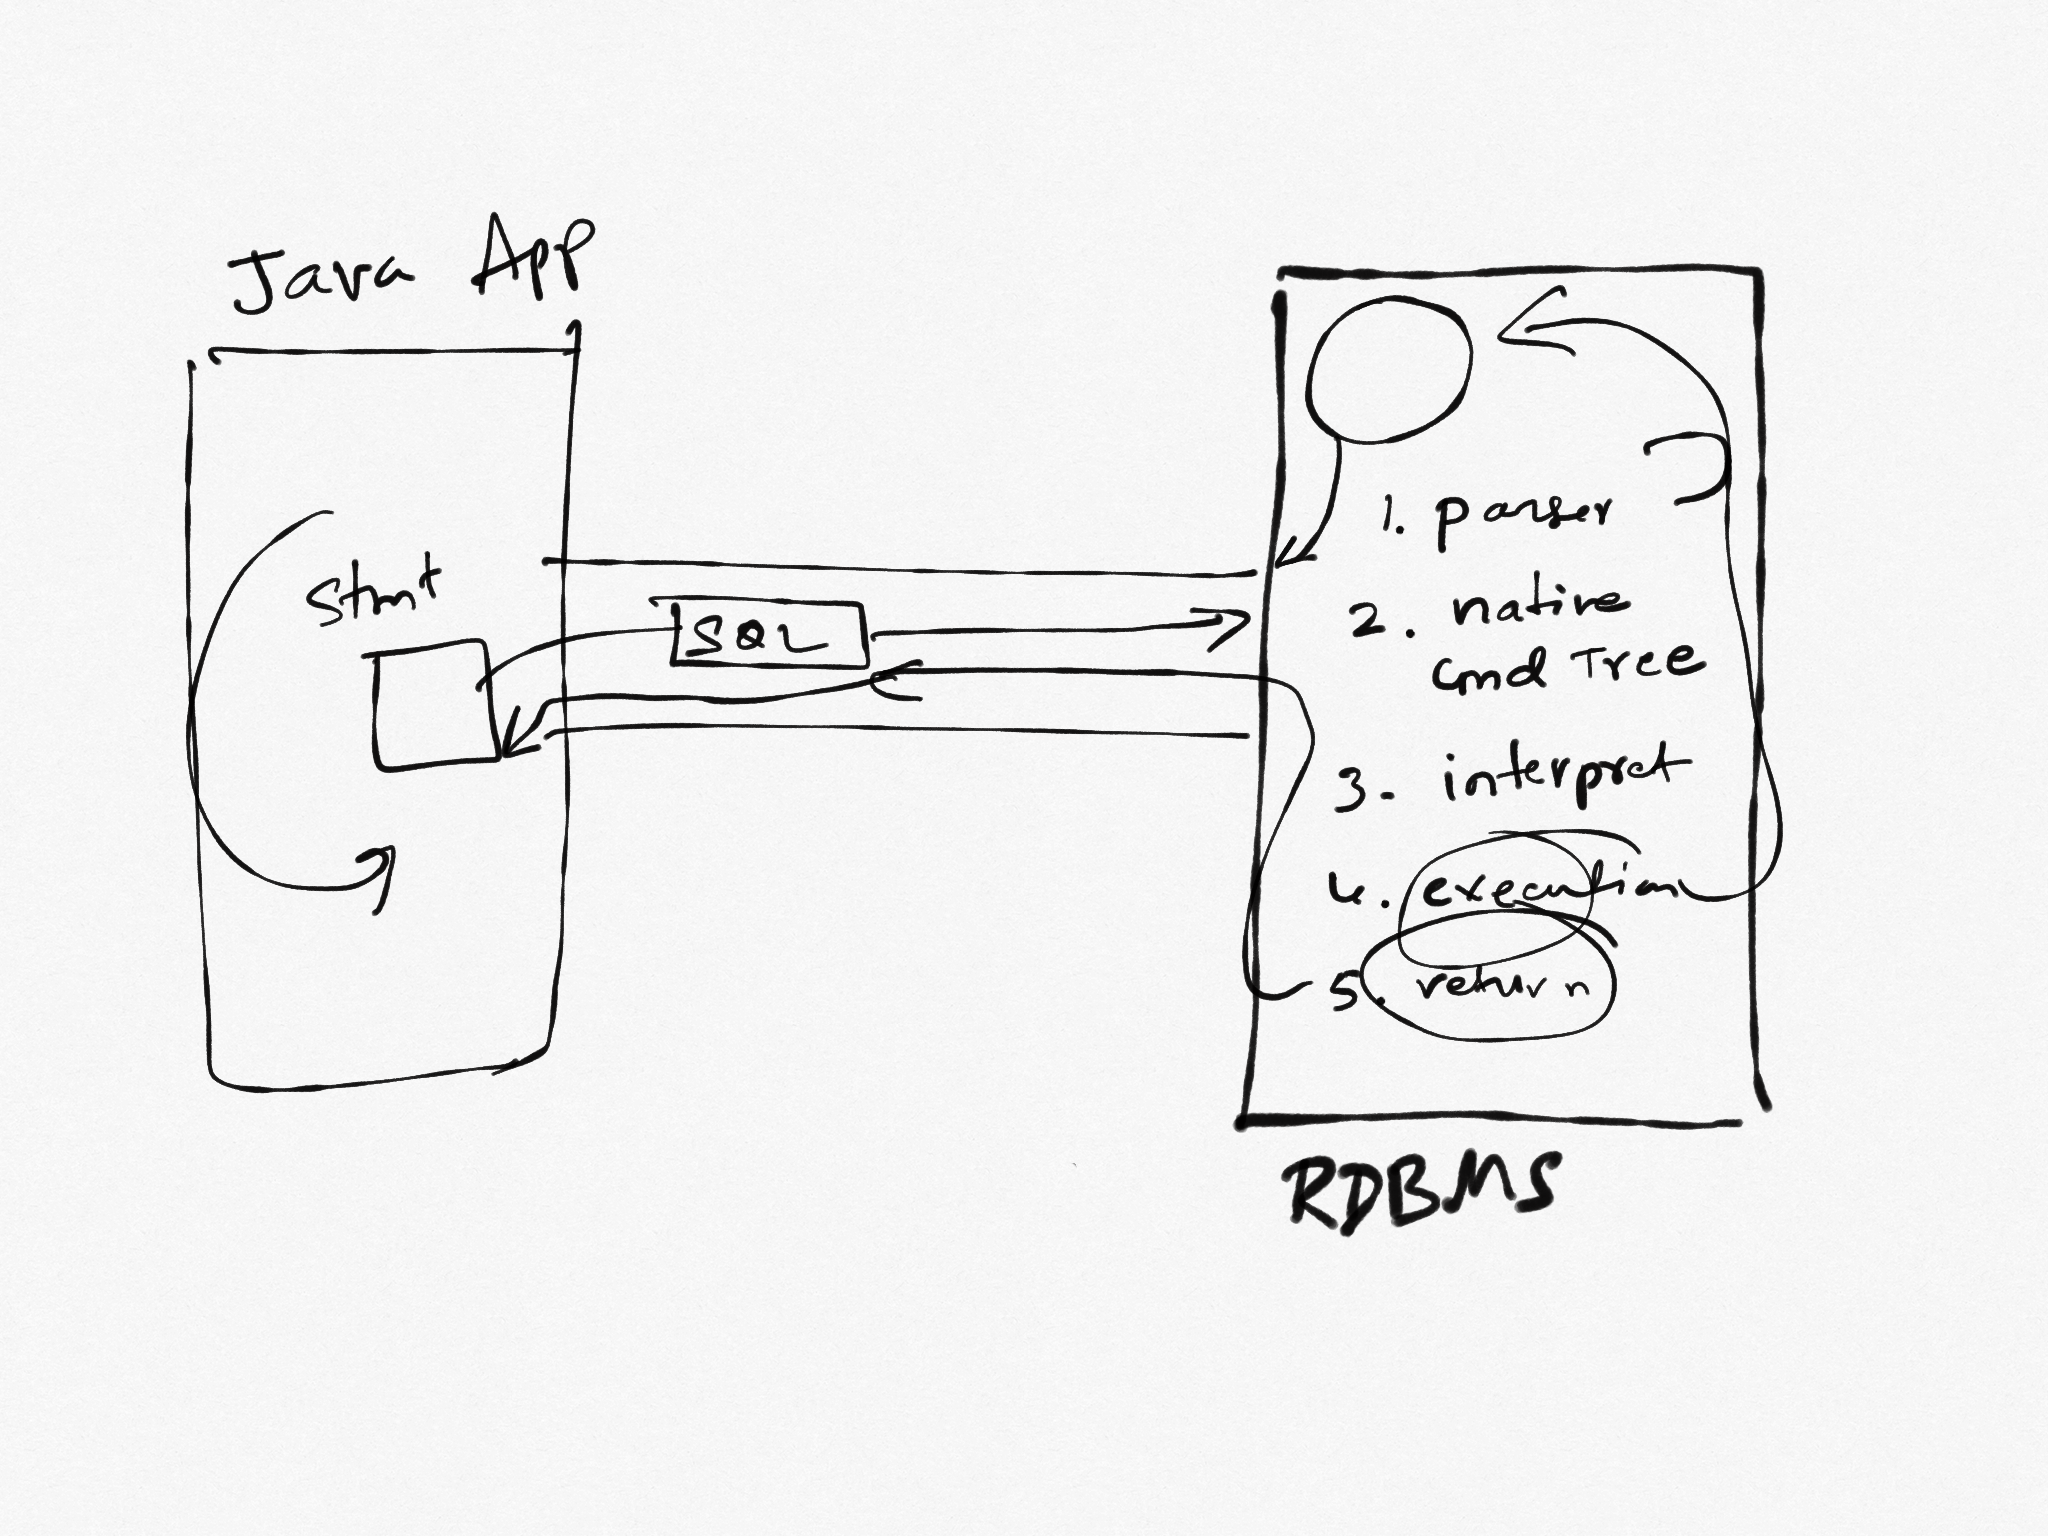 Java App
Stmt
SQL
1. parser
2. native
cmd Tree
3. interpret
4. execution
5. return
RDBMS